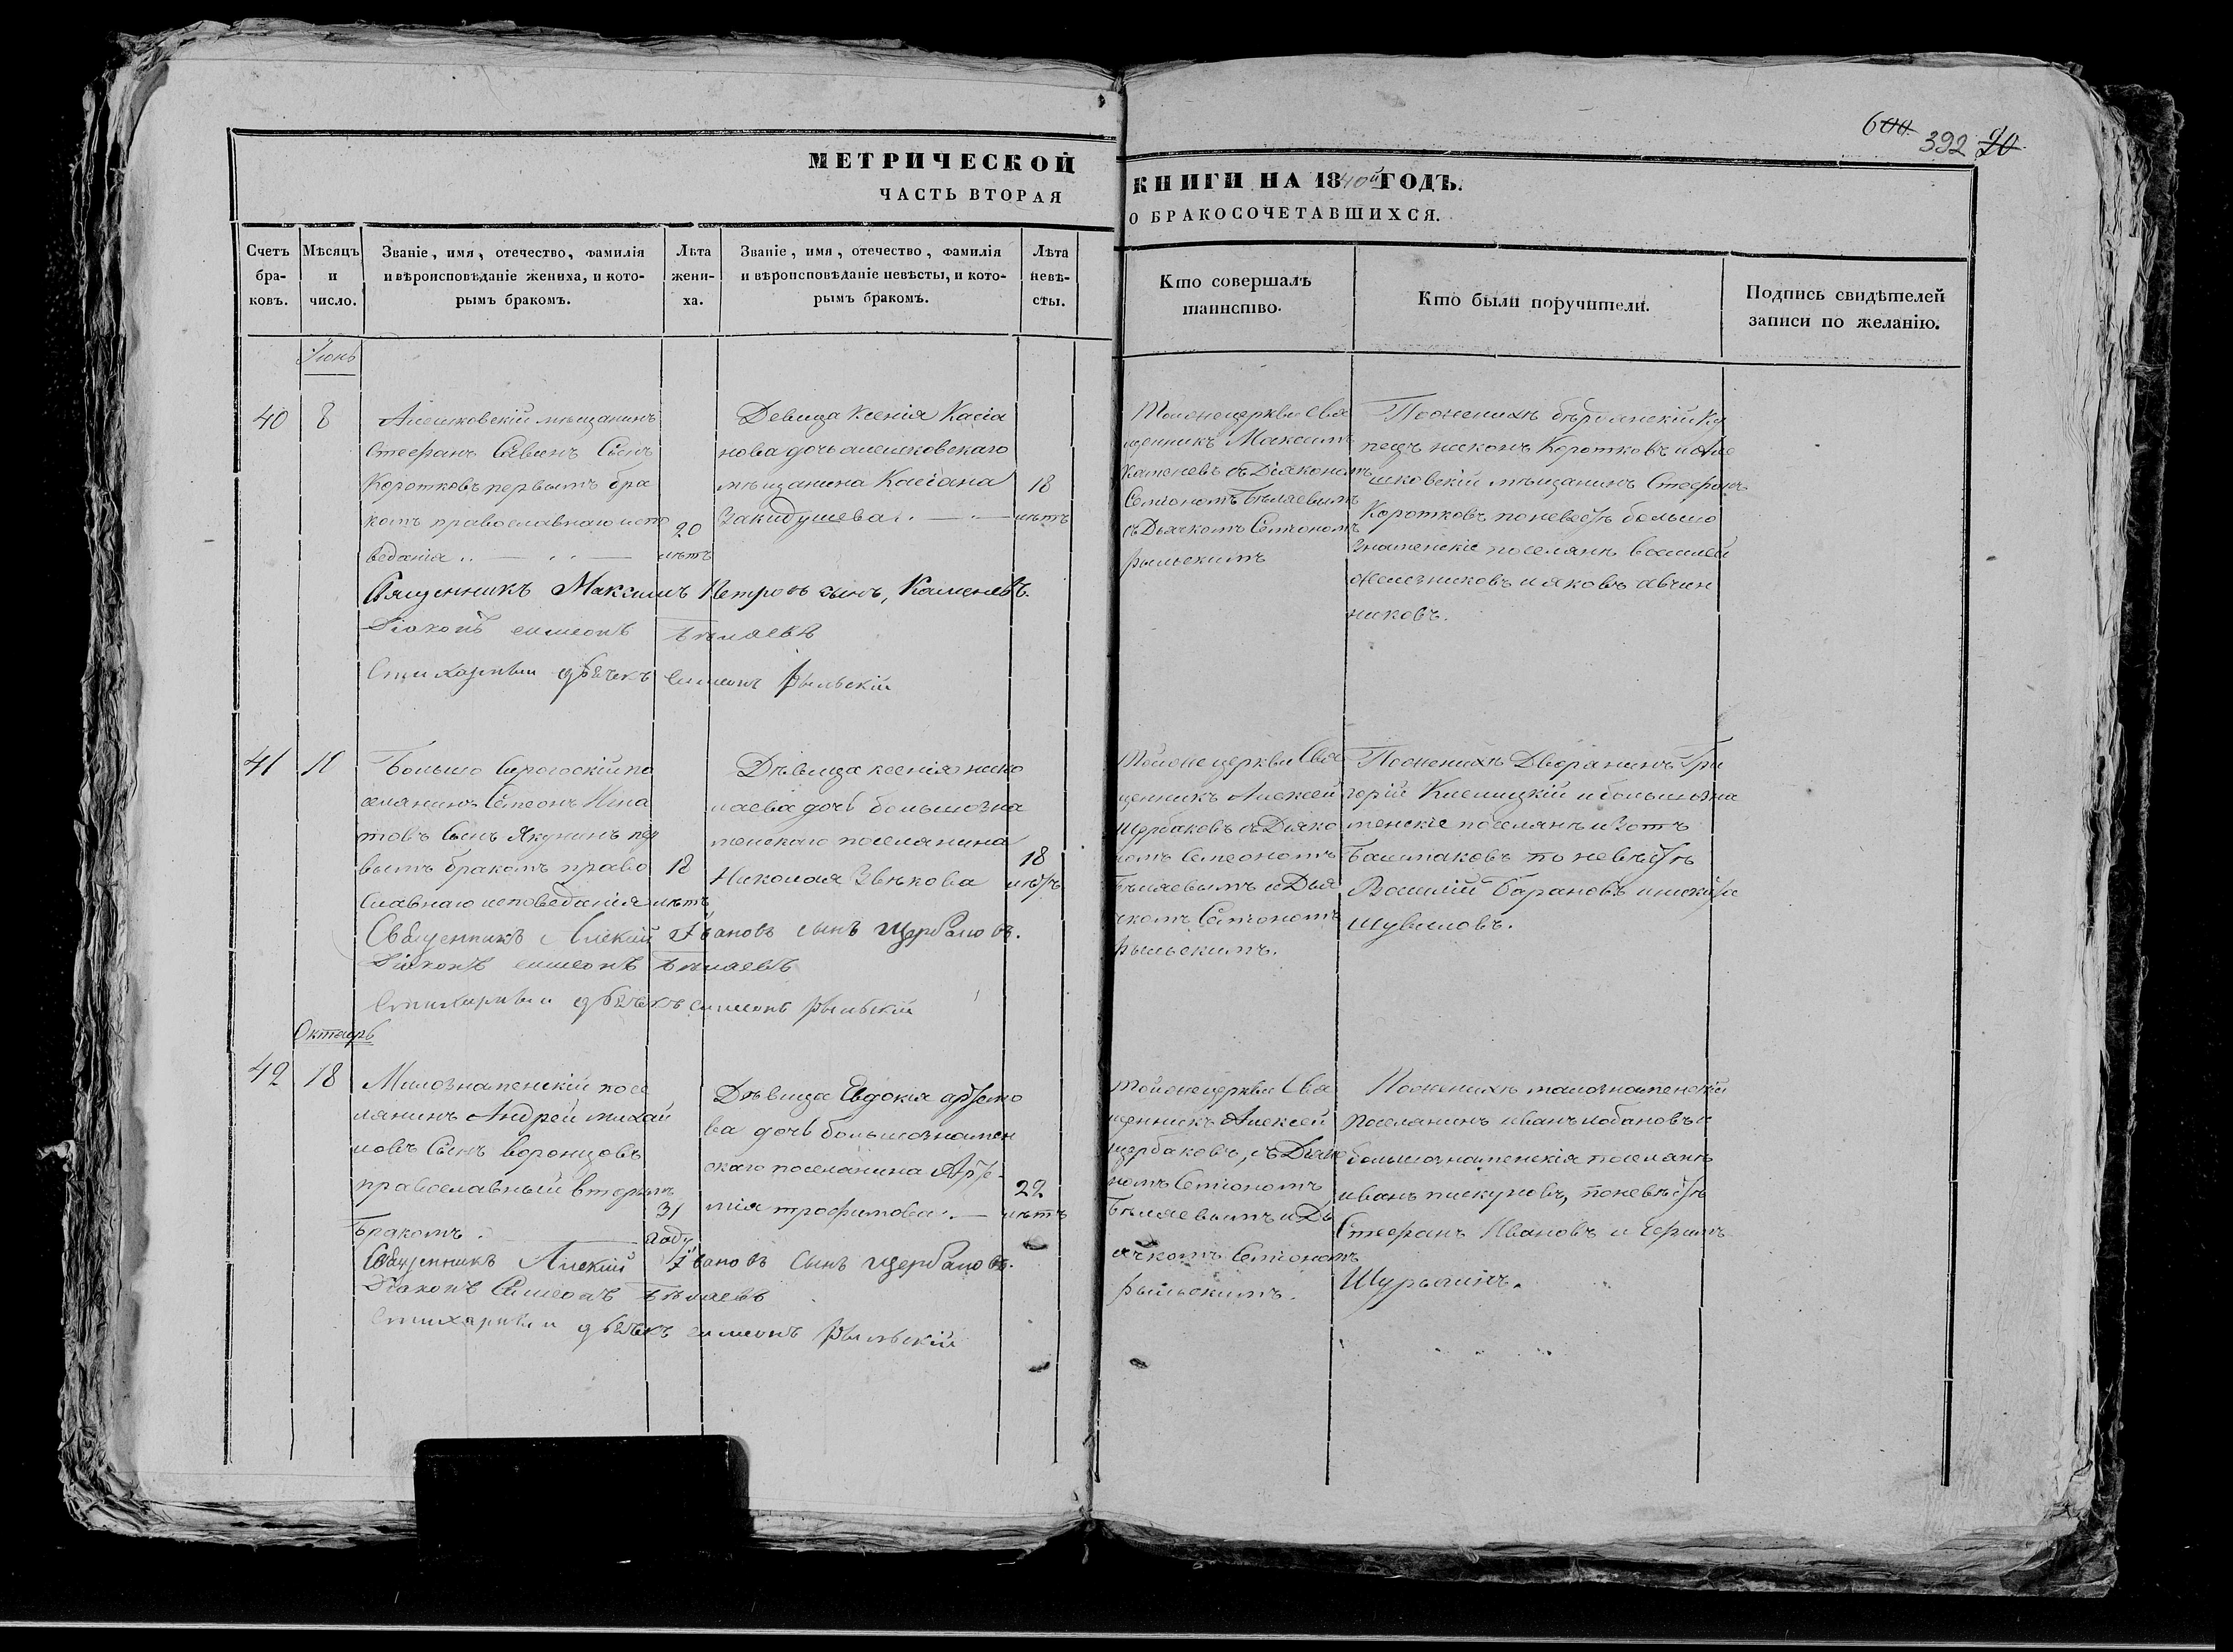 600 392 90
МЕТРИЧЕСКОЙ КНИГИ НА 1840й ГОДЪ.
ЧАСТЬ ВТОРАЯ О БРАКОСОЧЕТАВШИХСЯ.
Счетъ бра-ковъ.
Мѣсяцъ и число.
Званіе, имя, отечество, фамилія
и вѣроисповѣданіе жениха, и кото-
рымъ бракомъ.
Лѣта жени-ха.
Званіе, имя, отечество, фамилія
и вѣроисповѣданіе невѣсты, и кото-
рымъ бракомъ.
Лѣта невѣ-сты.
Кто совершалъ
таинство.
Кто были поручители.
Подпись свидѣтелей
записи по желанію.
Іюнь
40
8
Алешковскій мѣщанинъ
Стефанъ Савинъ Сынъ
Коротковъ первымъ бра
комъ православнаго испо
веданія
20
лѣтъ
Девица Ксенія Касіа
нова дочь алешковскаго
мѣщанина Касіана
Закидушева
18
лѣтъ
Тойоне церкви Свя
щенникъ Максимъ
Каменевъ съ Діякономъ
Семіономъ Бѣляевымъ
съ Дьячкомъ Семіономъ
рыльскимъ
По женихѣ бѣрдянскій Ку
пецъ никонъ Коротковъ и Але
шковскій мѣщанинъ Стефанъ
Коротковъ по невестѣ большо
знаменскіе поселянѣ василей
Железниковъ и яковъ авчин
никовъ.
Священникъ Максимъ Петровъ сынъ, Каменевъ.
Діаконъ симеонъ Бѣляевъ
Стихарный дьячекъ симеонъ рыльскій
41
11
Большо Серогоскій по
селянинъ Семеонъ Игна
товъ Сынъ Якунинъ пер
вымъ бракомъ право
славнаго исповеданія
18
лѣтъ
Дѣвица ксенія нико
лаева дочь большозна
менскаго поселянина
Николая Звѣкова
18
лѣтъ
Тойоне церкви Свя
щенникъ Алексей
Щербаковъ съ Діяко
номъ Семеономъ
Бѣляевымъ и Дья
чкомъ Семіономъ
рыльскимъ.
По женихѣ Дворянинъ Гри
горій Клемицкій и большозна
менскіе поселянѣ изотъ
Башмаковъ по невѣстѣ
Василій Барановъ и никита
Шувиловъ.
Священникъ Алекій Ивановъ сынъ Щербаковъ.
Діаконъ симеонъ Бѣляевъ
Стихарный дьячекъ симеонъ рыльскій
Октябрь
42
18
Малознаменскій посе
лянинъ Андрей михай
ловъ Сынъ воронцовъ
православный вторымъ
бракомъ.
31
году
Дѣвица Евдокія артемо
ва дочь большознамен
скаго поселянина Арте
мія трофимова
22
лѣтъ
Тойоне церкви Свя
щенникъ Алексей
щербаковъ, съ Діяко
номъ Семіономъ
Бѣляевымъ и Дь
ячкомъ Семіономъ
рыльскимъ.
По женихѣ малознаменскій
поселянинъ иванъ лобановъ и
большознаменскія поселянѣ
иванъ пискуновъ, по невѣстѣ
Стефанъ Ивановъ и Ефимъ
Шурыгинъ.
Священникъ Алекій Ивановъ сынъ Щербаковъ.
Діаконъ Симеонъ Бѣляевъ
Стихарный дьячекъ симеонъ рыльскій